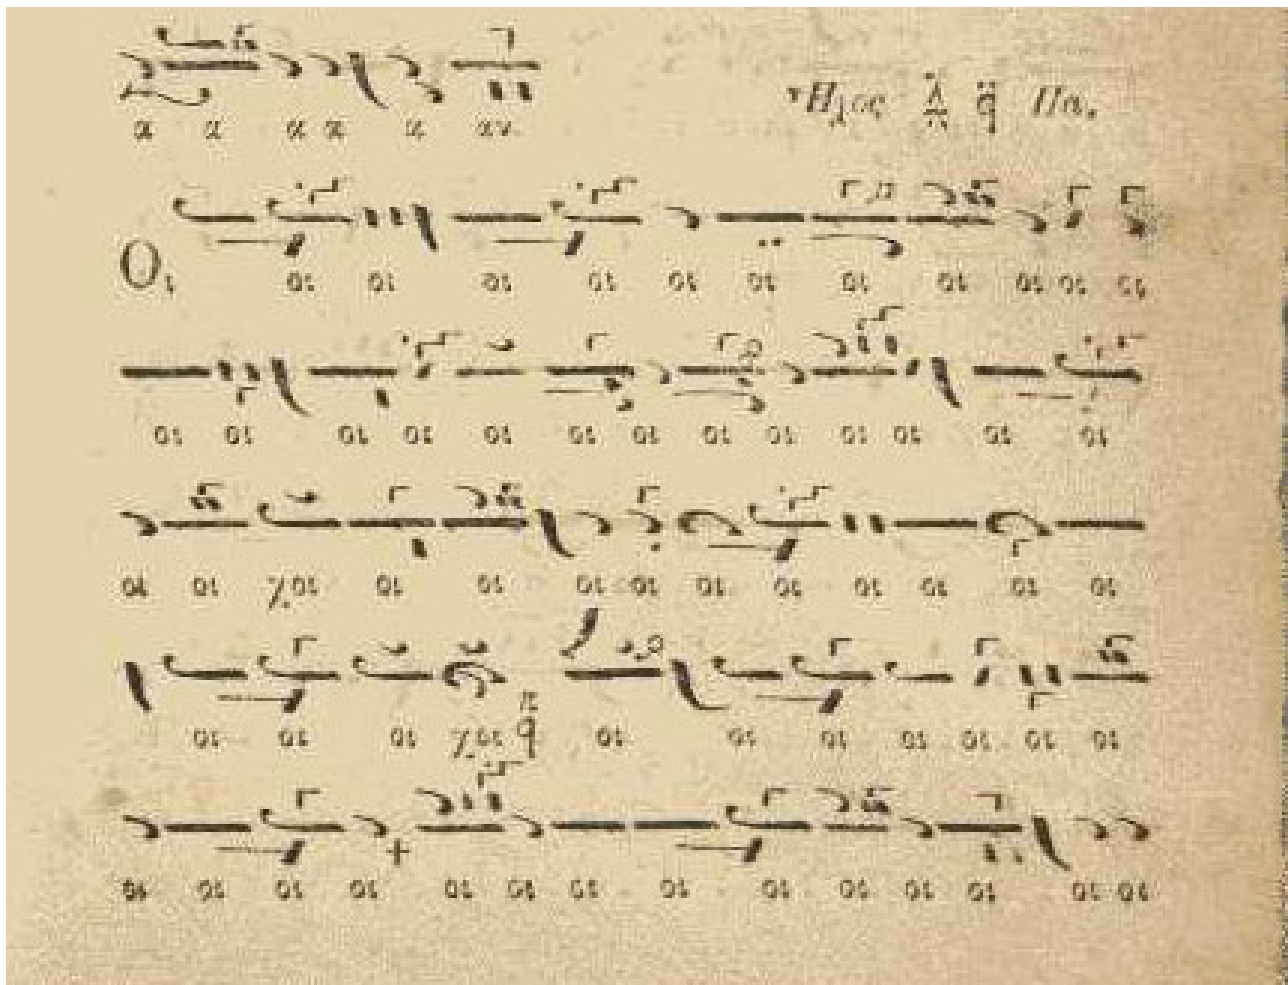 α α α α α αν
Ἦχος λ̈ q̈ Πα.
Οι οι οι οι οι οι οι οι οι οι οι οι
οι οι οι οι οι οι οι οι οι οι οι οι οι
οι οι χοι οι οι οι οι οι οι οι οι
οι οι οι χοι π q οι οι οι οι οι οι οι
οι οι οι οι οι οι οι οι οι οι οι οι οι οι